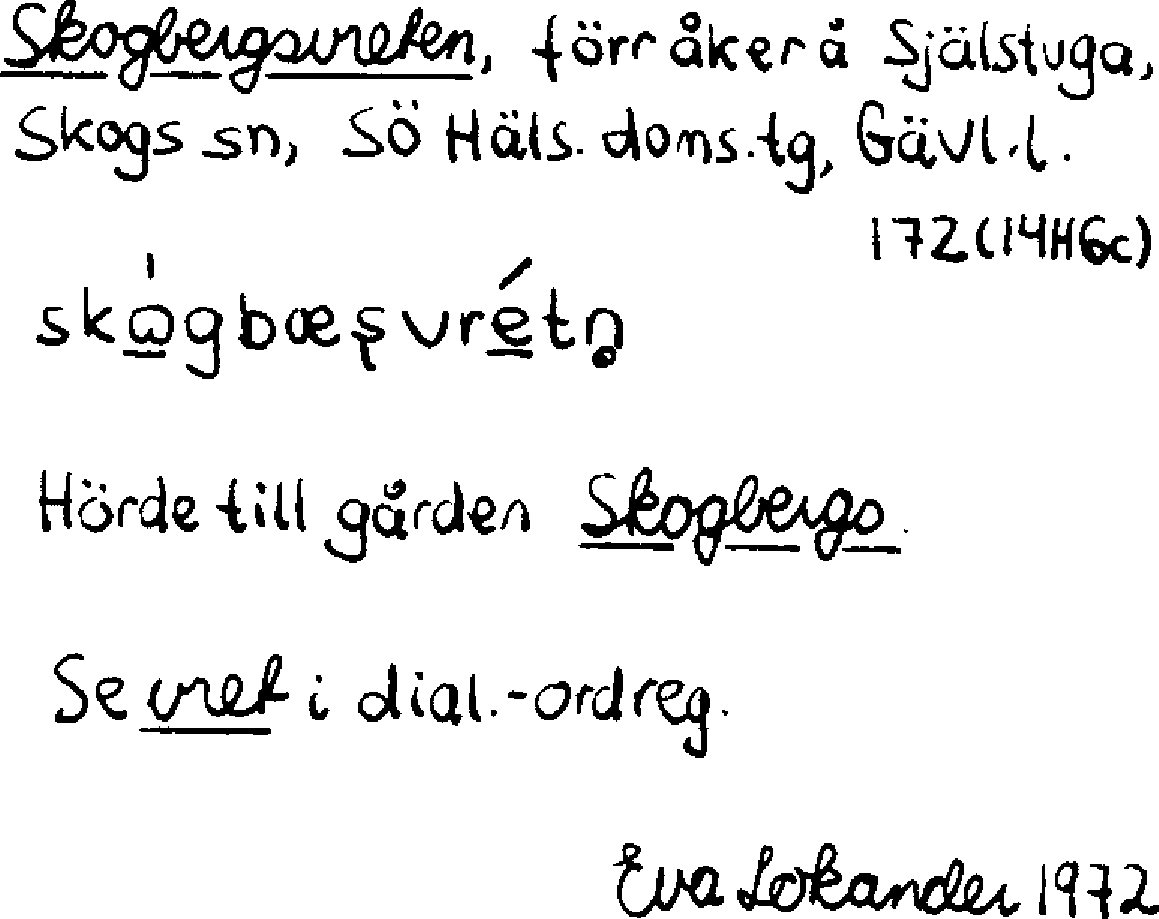 Skogbergsvreten, förr åker å Själstuga,
Skogs sn, Sö Häls. doms.tg, Gävl.l.
172(14H6c)
skὼ̲gbæşvré̲tn̥
Hörde till gården Skogbergs.
Se vret i dial.-ordreg.
Eva Lokander 1972